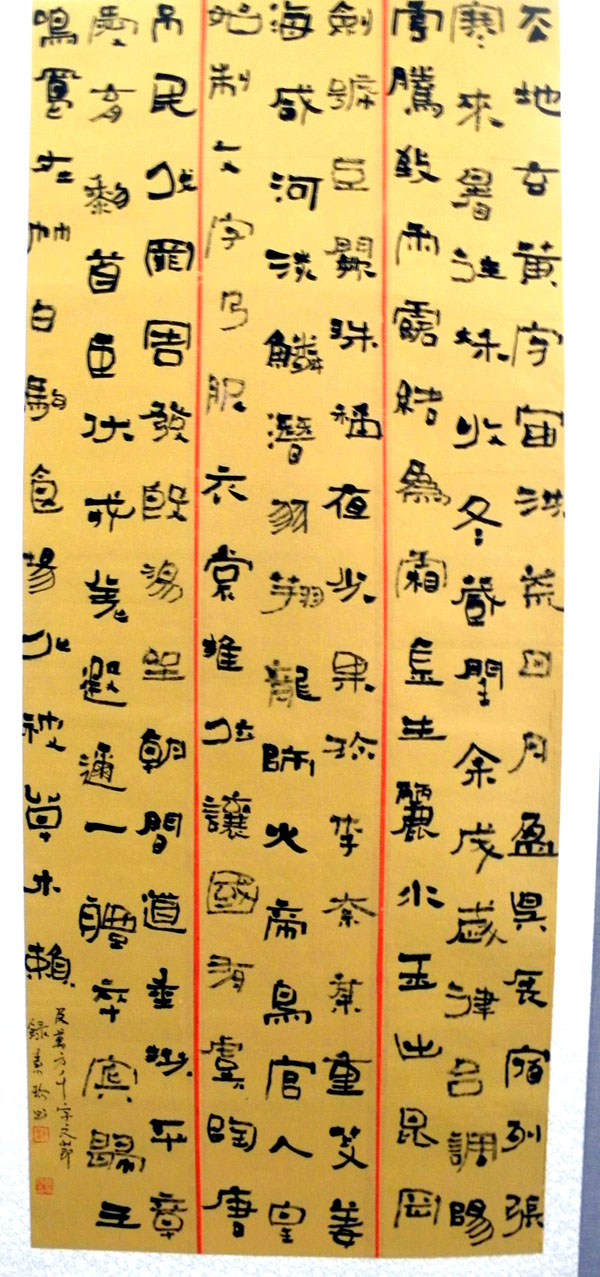 天地玄黃宇宙洪荒日月盈昃辰宿列張
寒來暑往秋收冬藏閏余成歲律呂調陽
雲騰致雨露結為霜金生麗水玉出昆岡
劍號巨闕珠稱夜光果珍李柰菜重芥姜
海咸河淡鱗潛羽翔龍師火帝鳥官人皇
始制文字乃服衣裳推位讓國有虞陶唐
吊民伐罪周發殷湯坐朝問道垂拱平章
愛育黎首臣伏戎羌遐邇一體率賓歸王
鳴鳳在竹白駒食場化被草木賴
及萬方千字文節
録